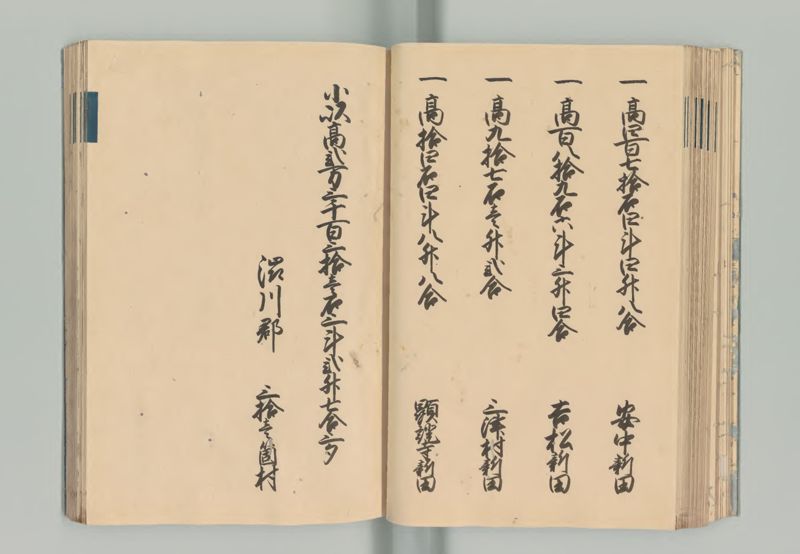 一 高四百七拾石四斗四升八合 安中新田
一 高百八拾九石六斗三升四合 吉松新田
一 高九拾七石壱升弐合 三津村新田
一 高拾四石四斗八升八合 顕証寺新田
小以高弐万三千百三拾壱石三斗弐升七合
渋川郡 三拾壱箇村